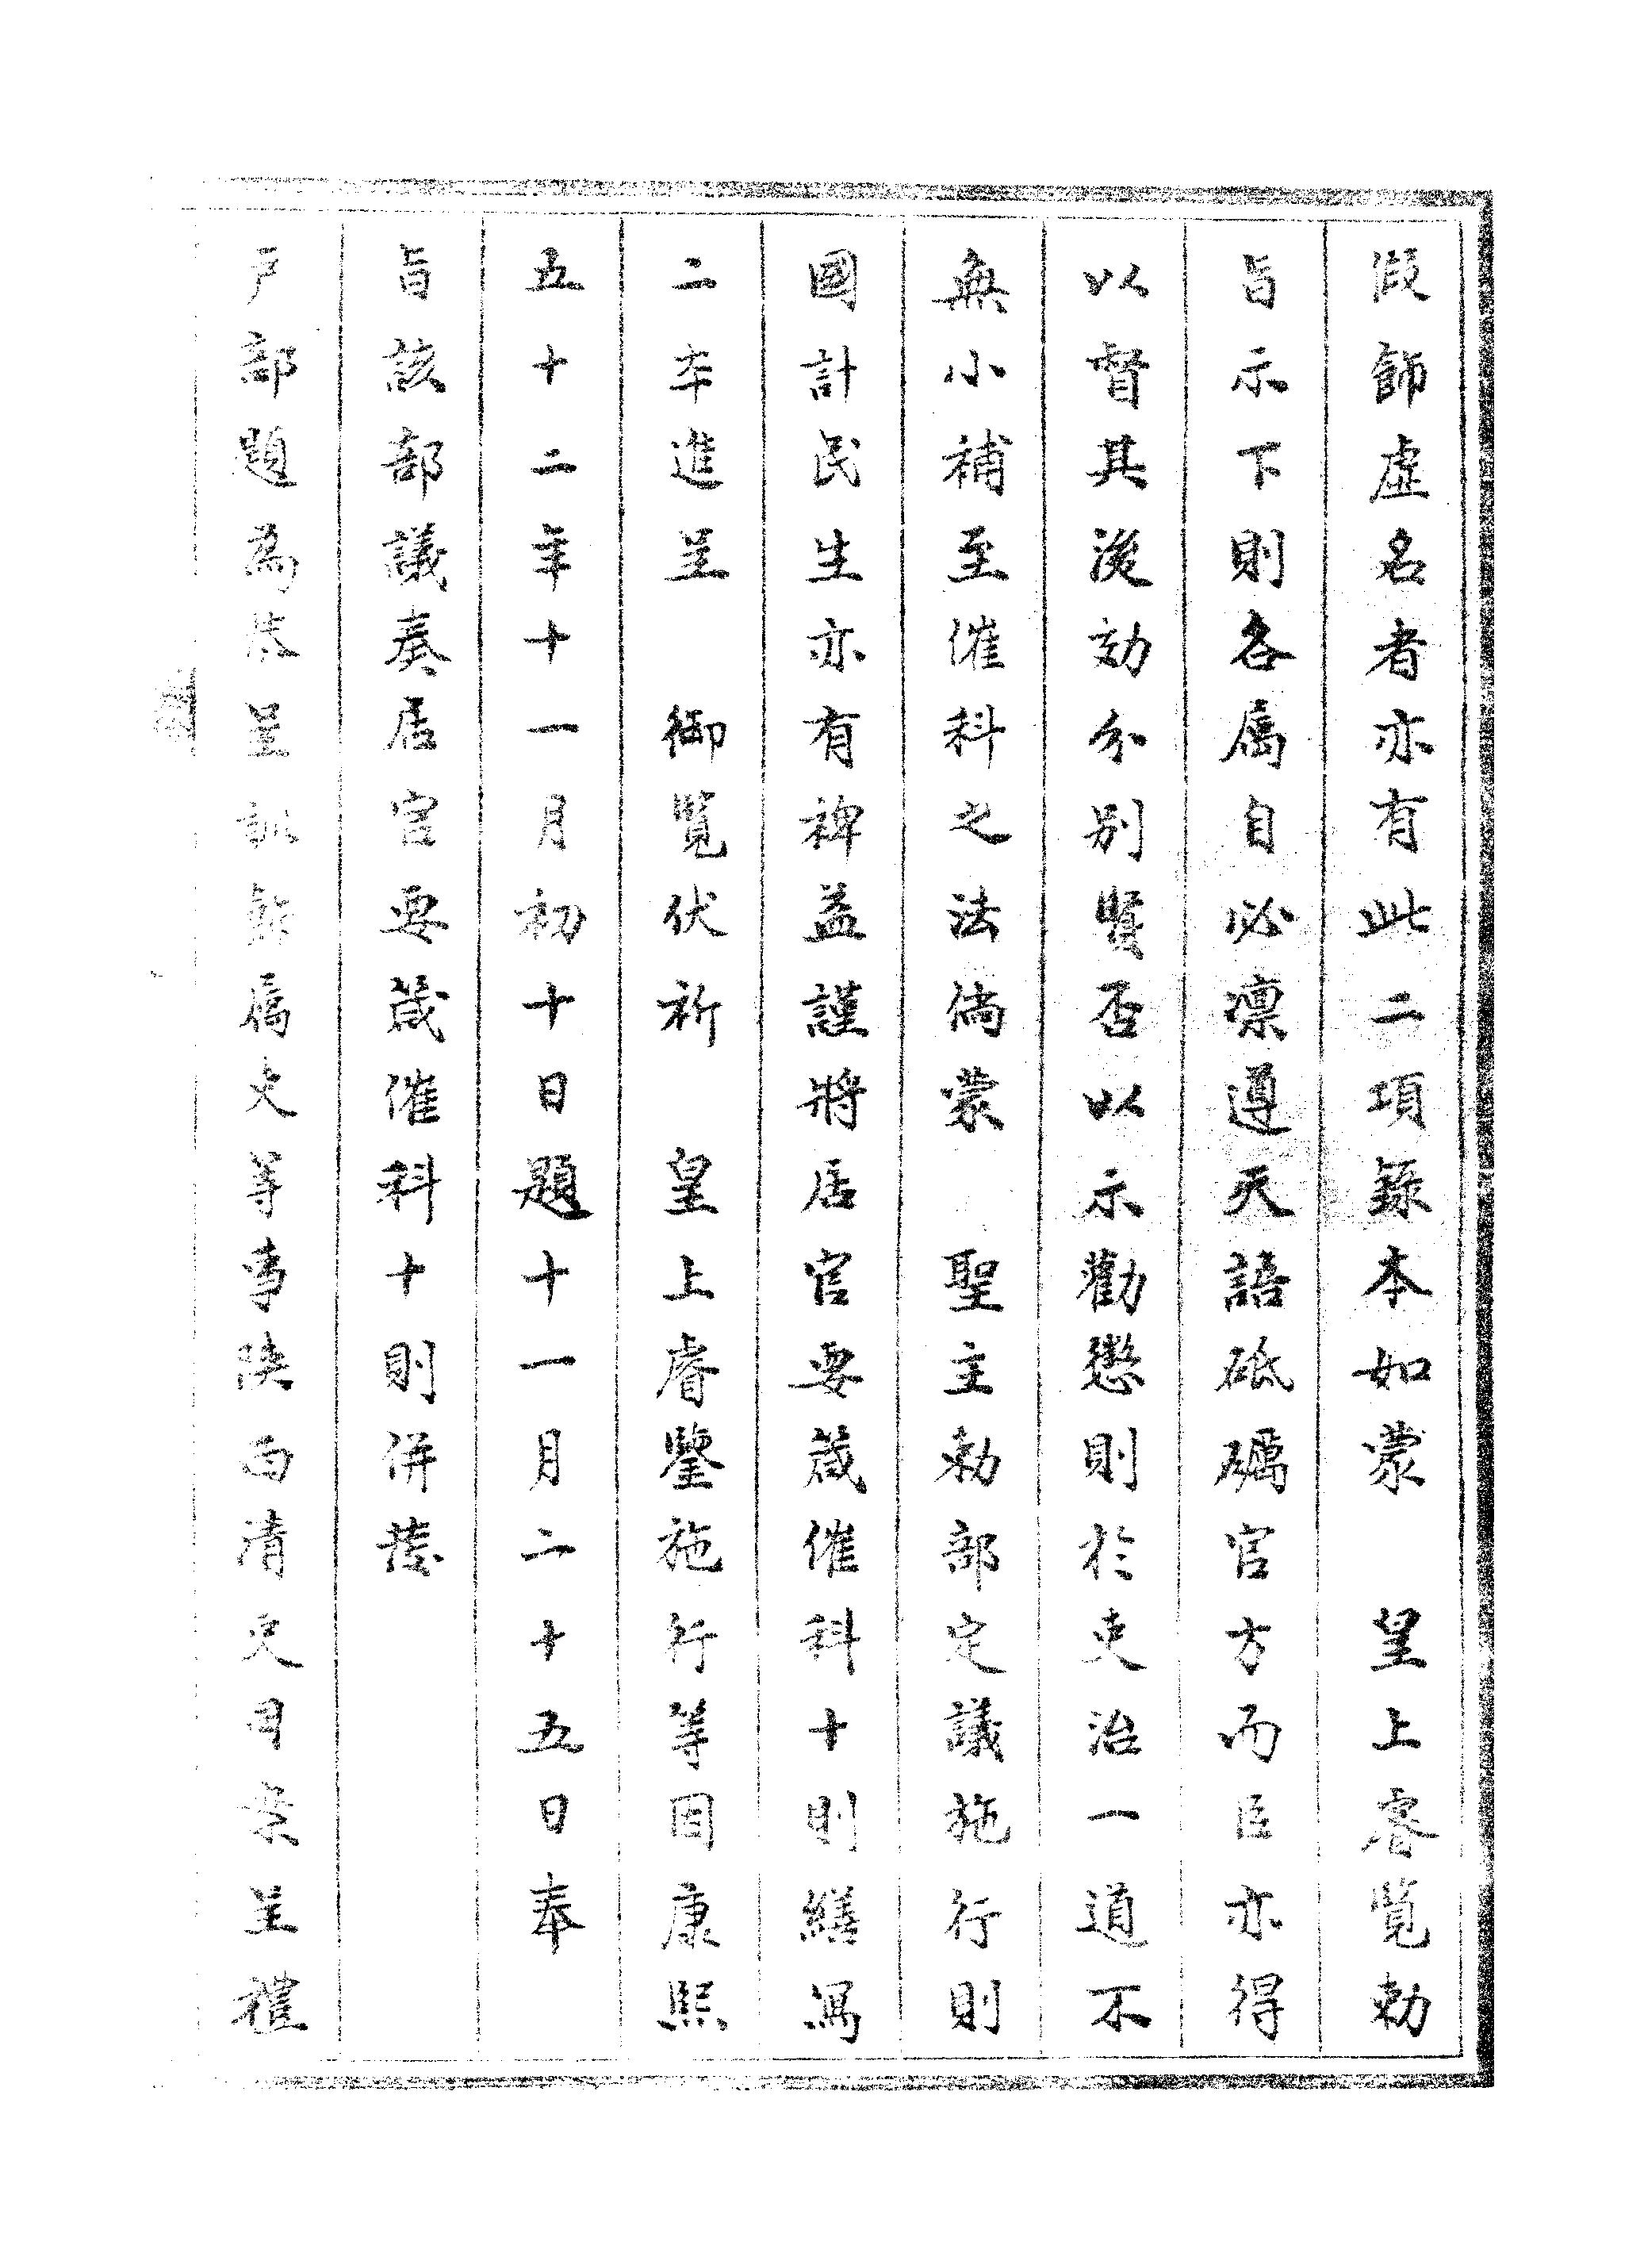 假飾虛名者亦有此二項錄本如蒙　皇上睿覽勅
旨示下則各属自必凛遵天語砥礪官方而臣亦得
以督其後効分别賢否以示勸懲則於吏治一道不
無小補至催科之法倘蒙　聖主勅部定議施行則
國計民生亦有裨益謹將居官要箴催科十則繕寫
二本進呈　御覽伏祈　皇上睿鑒施行等因康熙
五十二年十一月初十日題十一月二十五日奉
旨該部議奏居官要箴催科十則併發
户部題為恭呈訓飭属吏等事陜西清吏司案呈禮